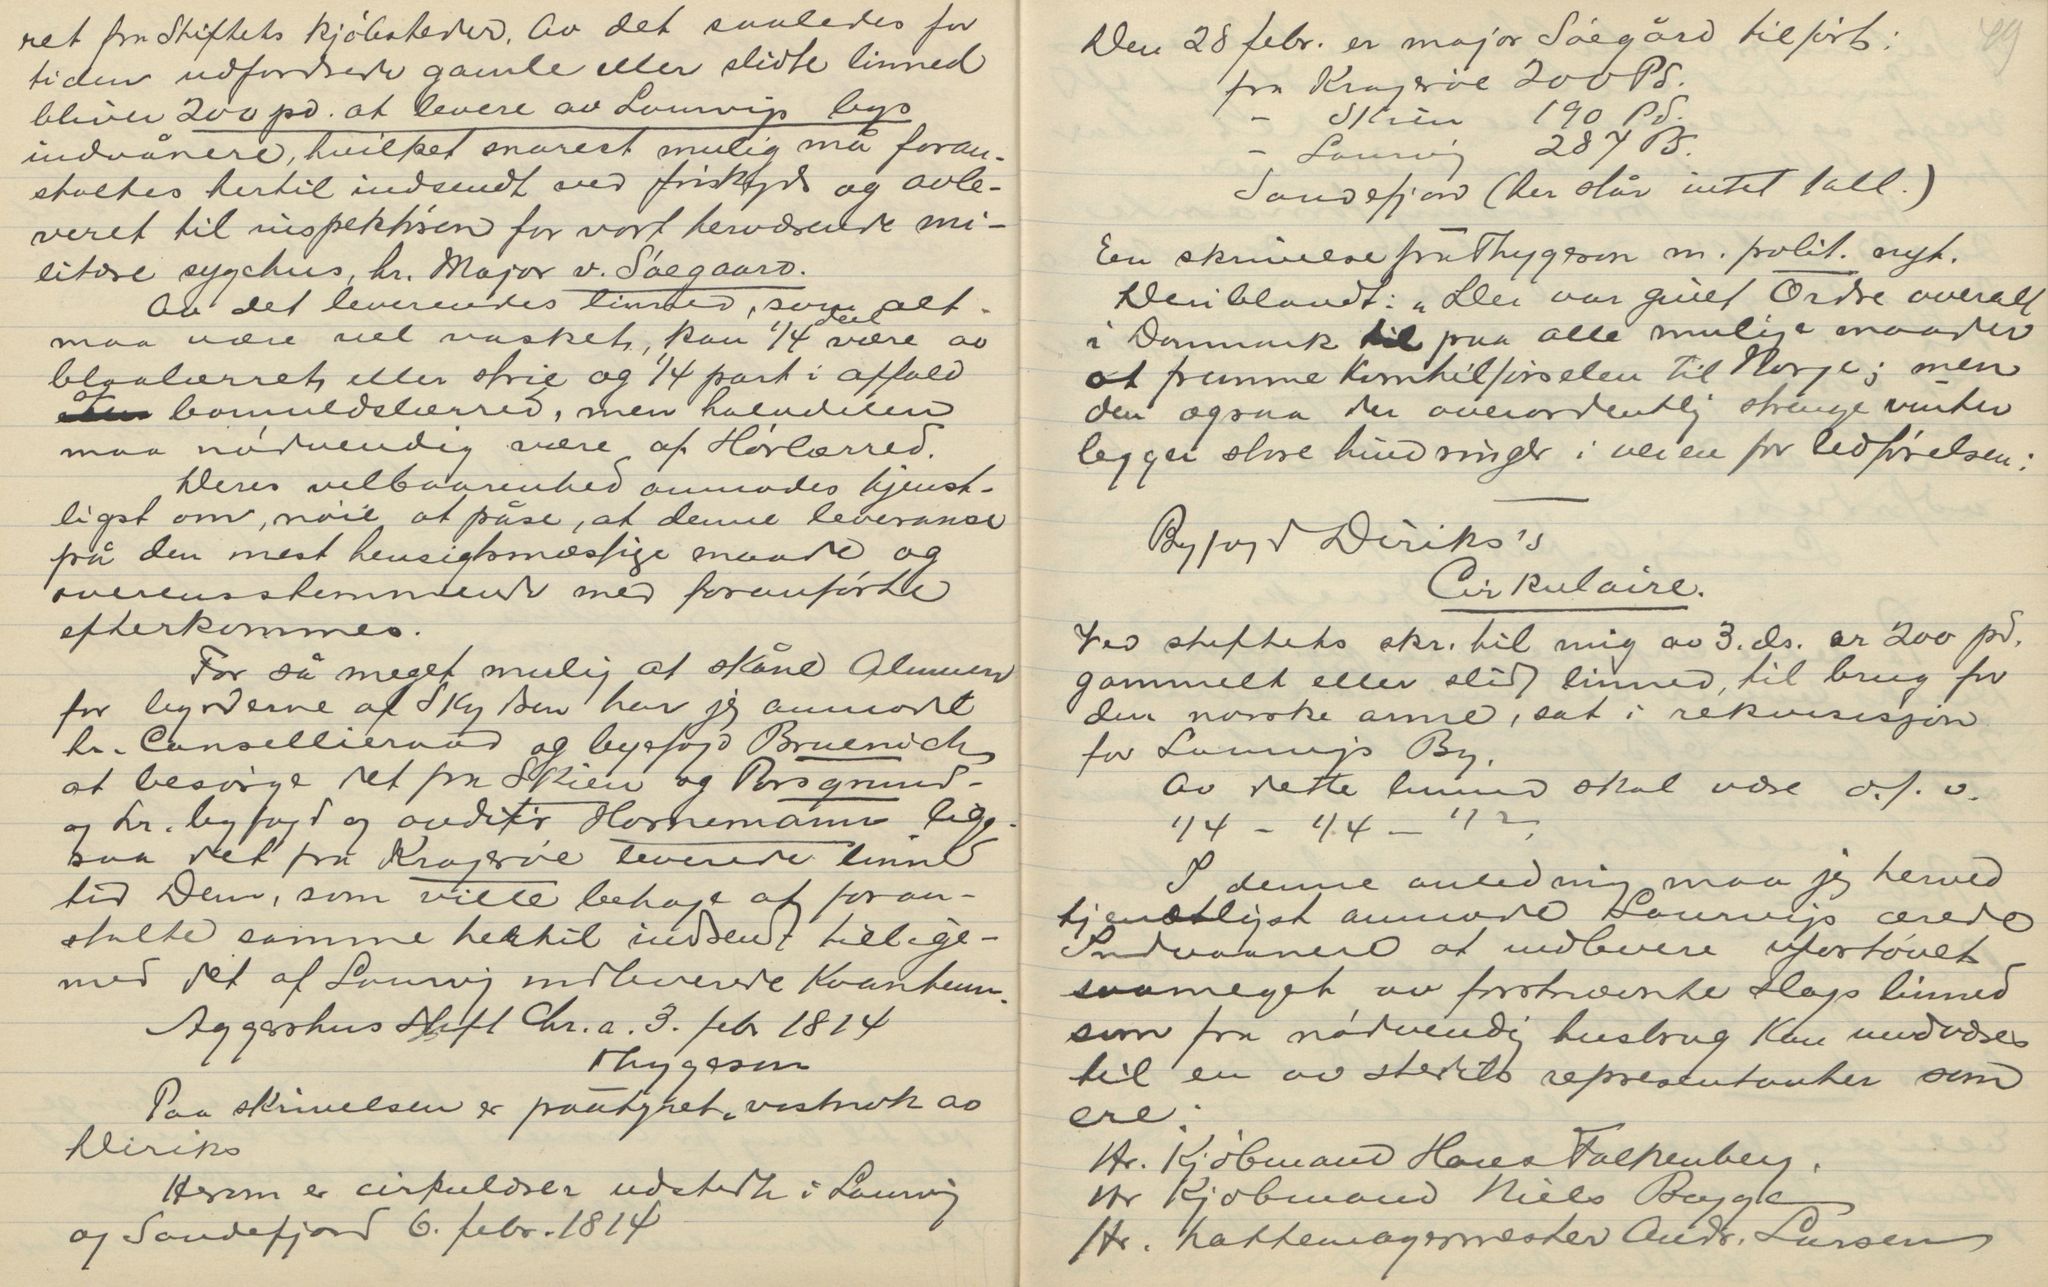 ret fra Stiftets kjöbsteder. Av det saaledes for
tiden udfordrede gamle eller slidte linned
bliver 200 pd. at levere av Laurvigs bys
indvånere, hvilket snarest mulig må foran-
staltes hertil indsendt ved friskyds og avle-
veret til inspektören for vort herværende mi-
litære sygehus, hr. Major v. Söegaard.
Av det leverendes linned, som alt
maa være vel vasket, kan 1/4 deel være av
blaalærret eller strie og 1/4 part i affald
af bomuldslærred, men halvdelen
maa nödvendig være af Hörlærred.
Deres velbaarenhed anmodes tjenst-
ligst om, nöie at påse, at denne leveranse
på den mest hensigtsmæssige maade og
overensstemmende med foranförte
efterkommes.
For så meget mulig at skåne Almuen
for byrderne af Skydsen har jeg anmodet
hr. Cancellieraad og byefogd Bruenich
at besörge det fra Skien og Porsgrund-
og hr. byfogd og auditör Hornemann lige-
saa det fra Kragerøe leverede linned
til Dem, som ville behage at foran-
stalte samme hertil indsendt tillige-
med det af Laurvig indleverede Kvantum.
Aggershus Stift Chr.a. 3. febr 1814
Thygeson
Paa skrivelsen er paategnet, vistnok av
Diriks
Herom er cirkulærer udstedte i Laurvig
og Sandefjord 6. febr. 1814
49
Den 28 febr. er major Söegård tilfört:
fra Kragerøe 200 Pd.
- Skien 190 Pd.
- Laurvig 287 Pd.
Sandefjord (her står intet tall.)
En skrivelse fra Thygeson m. polit. nyt.
Deriblandt: „Der var givet Ordre overalt
i Danmark til paa alle mulige maader
at fremme Korntilförselen til Norge; men
den ogsaa der overordentlig strenge vinter
legger store hindringer i veien for Udförelsen:
Byfogd Diriks's
Cirkulaire.
Ved stiftets skr. til mig av 3. ds. er 200 pd.
gammelt eller slidt linned, til brug for
den norske arme, sat i rekvisisjon
for Laurvigs By.
Av dette linned skal være o.s.v.
1/4 - 1/4 - 1/2.
I denne anledning maa jeg herved
tjenstligst anmode Laurvigs ærede
Indvaanere at indlevere ufortövet
saameget av forstnævnte slags linned
som fra nödvendig husbrug kan undværes
til en av stedets representanter som
ere:
Hr. Kjöbmand Hans Falkenberg.
Hr Kjöbmand Niels Bagge
Hr. hattemagermester Andr. Larsen